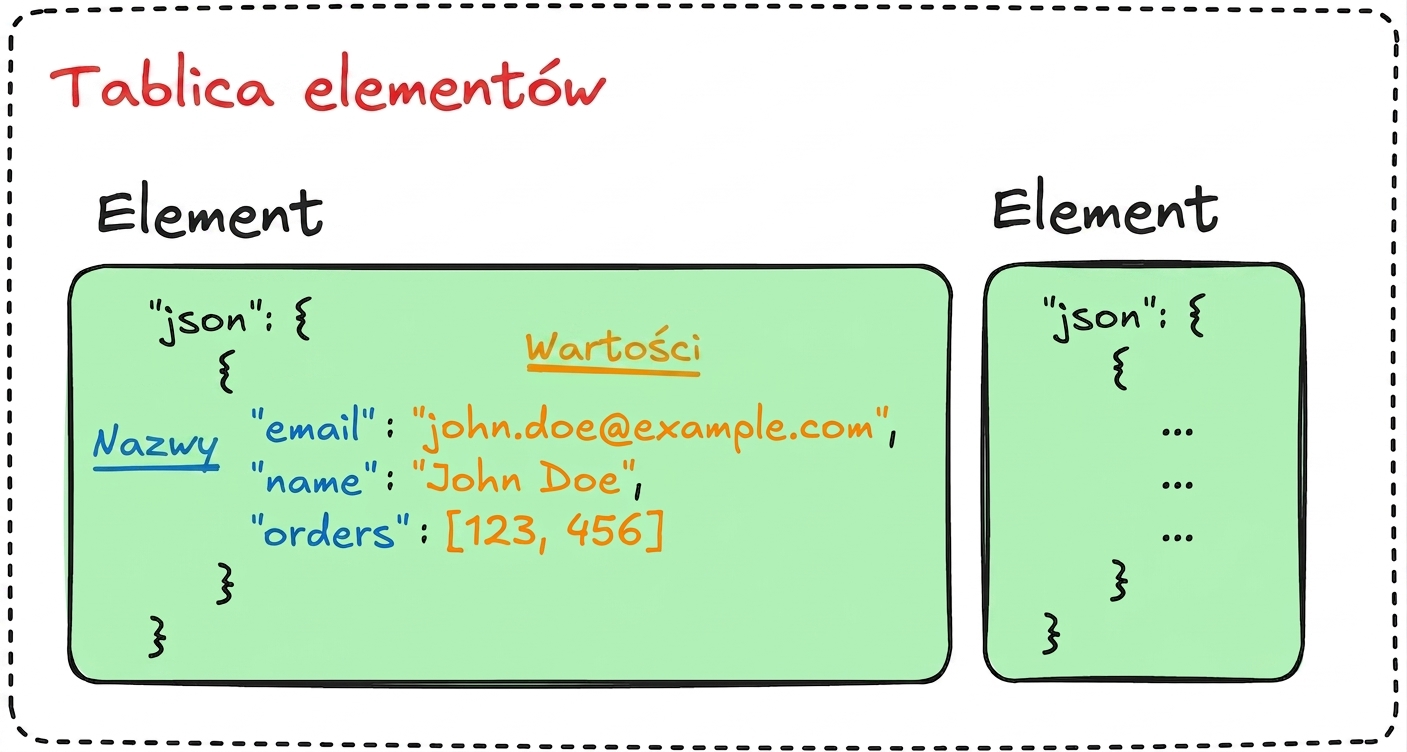 Tablica elementów
Element
"json": {
{
Wartości
Nazwy
"email": "john.doe@example.com",
"name": "John Doe",
"orders": [123, 456]
}
}
Element
"json": {
{
...
...
...
}
}